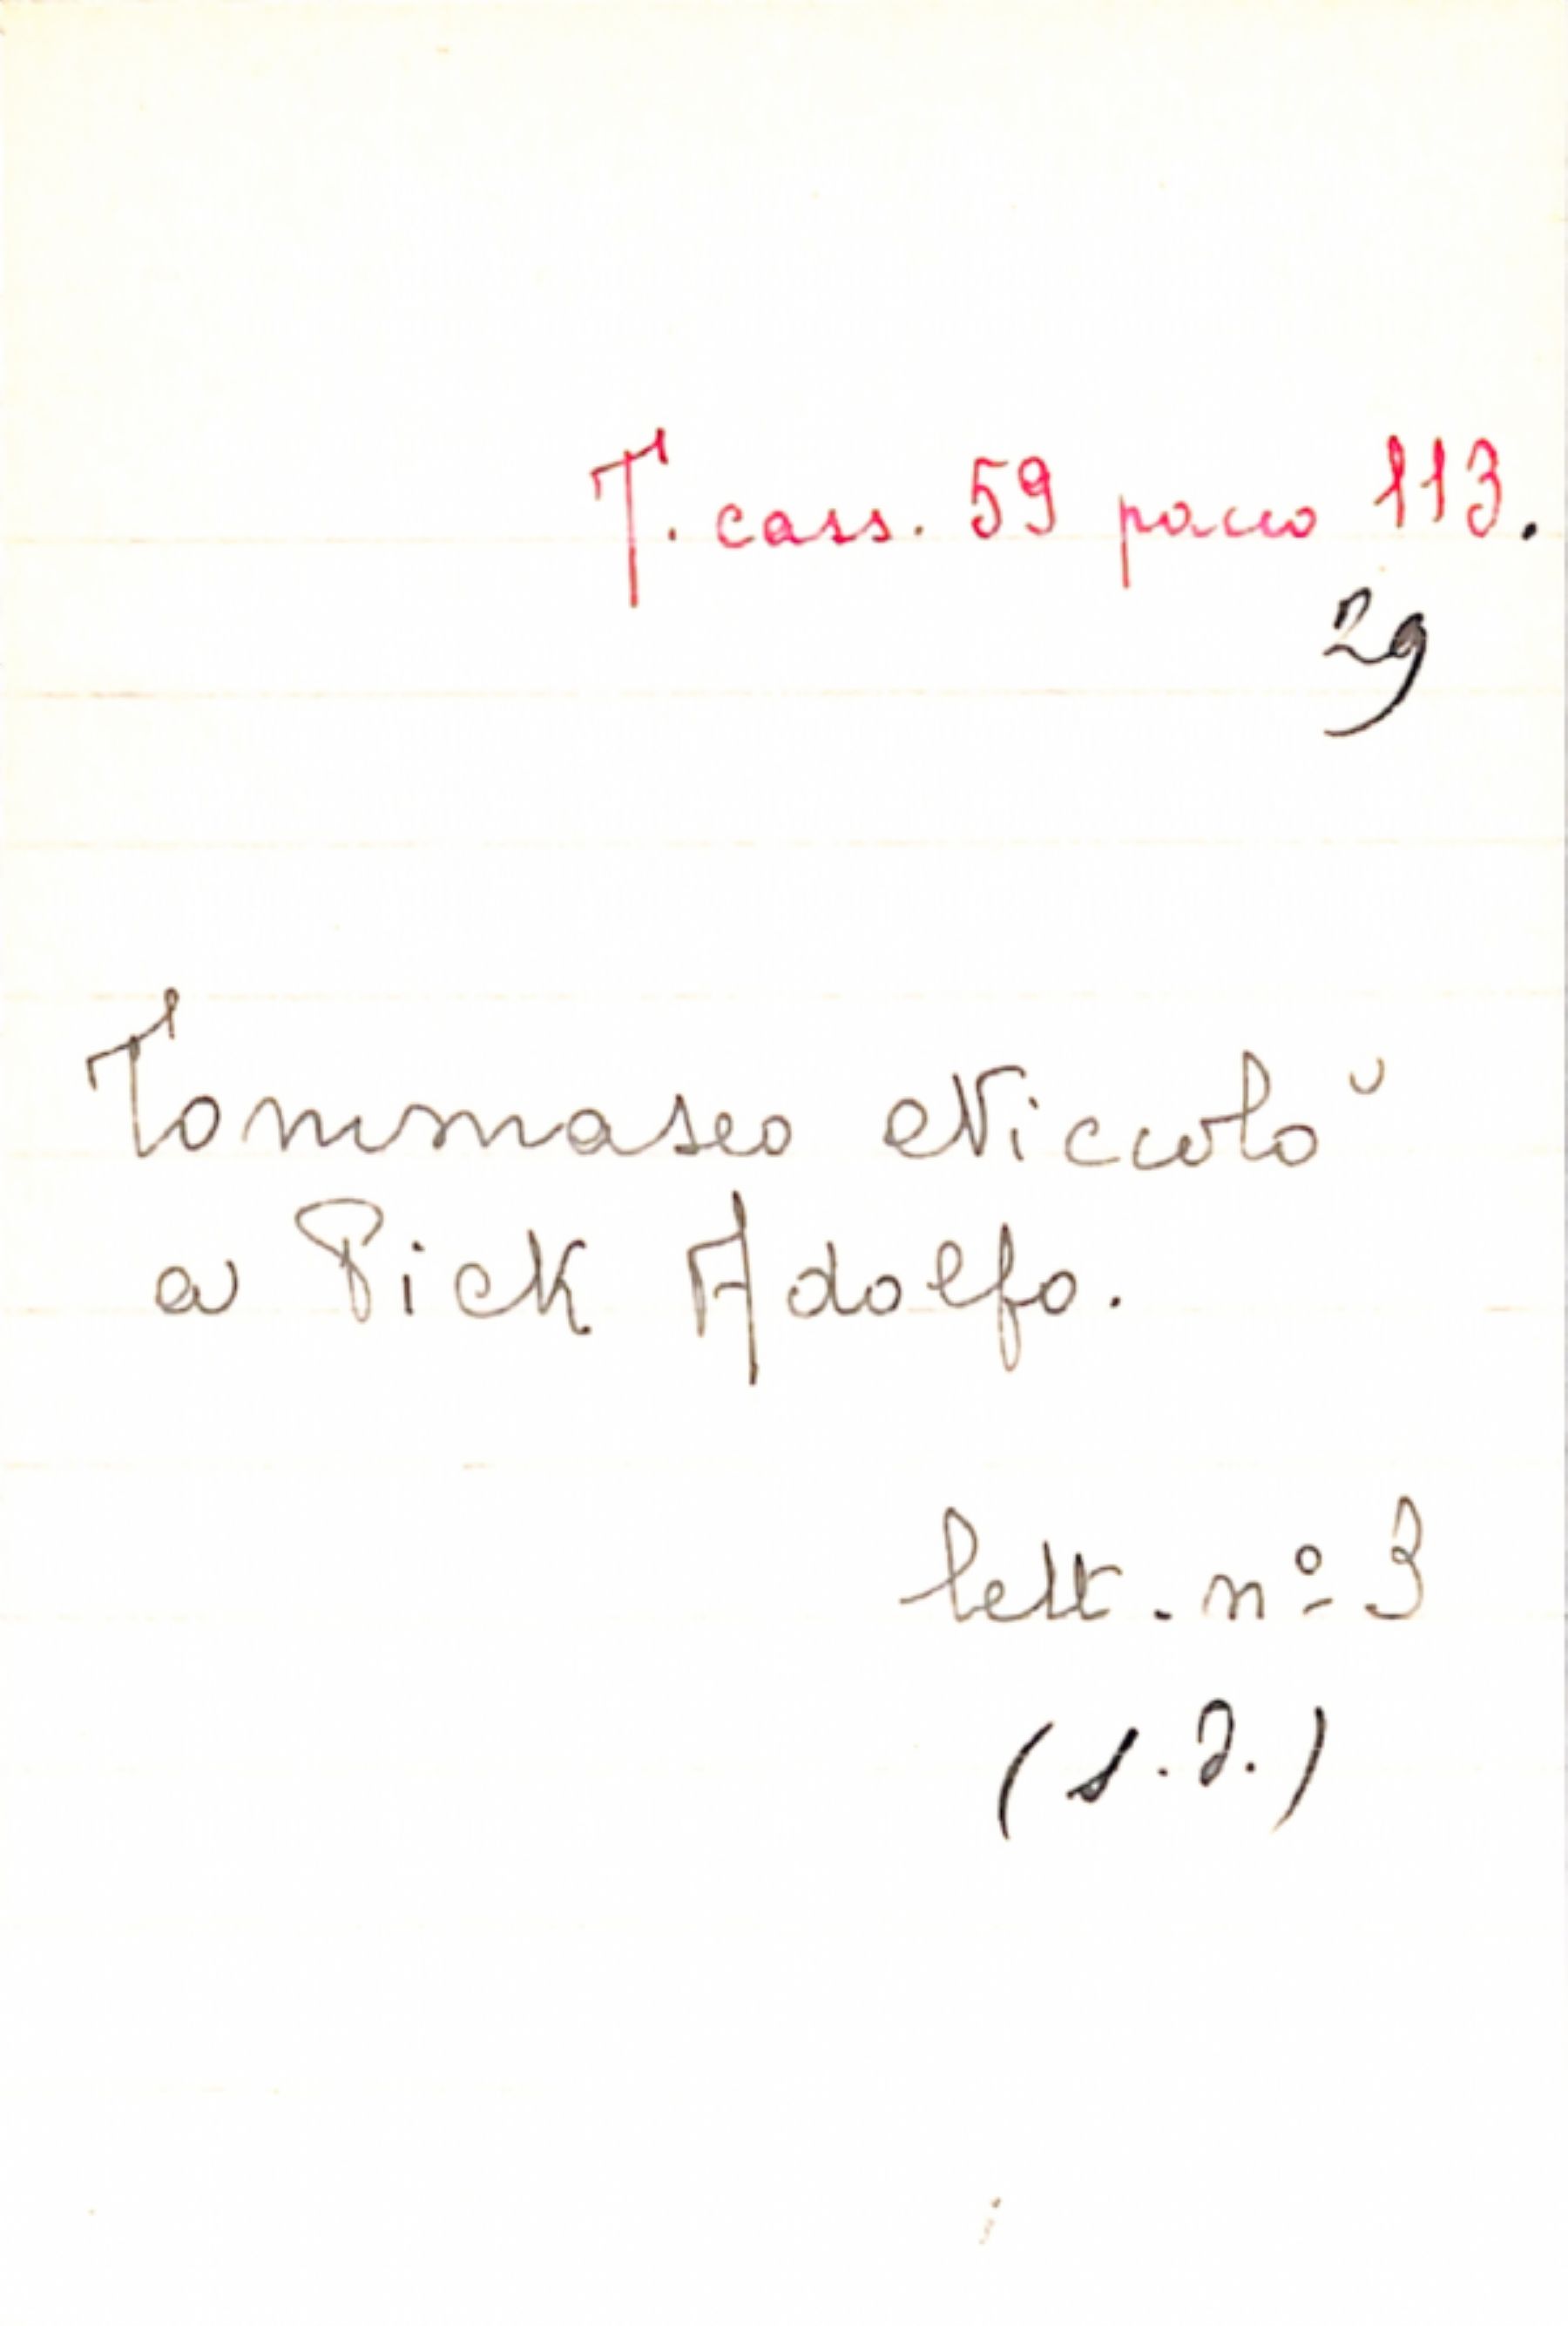 T. cass. 59 pacco 113.
29
Tommaseo Niccolò
a Pick Adolfo.
lett. nº 3
(s.d.)